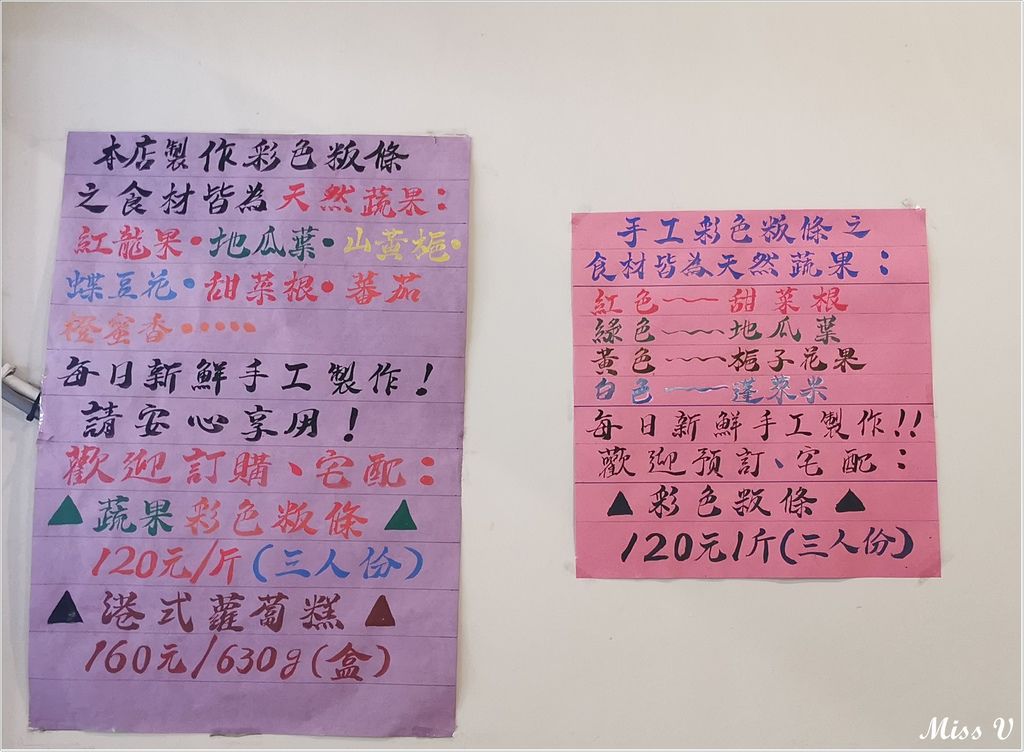 本店製作彩色粄條
之食材皆為天然蔬果：
紅龍果•地瓜葉•山黃梔•
蝶豆花•甜菜根•蕃茄
橙蜜香••••••
每日新鮮手工製作！
請安心享用！
歡迎訂購、宅配：
▲蔬果彩色粄條▲
120元/斤(三人份)
▲港式蘿蔔糕▲
160元/630g(盒)
手工彩色粄條之
食材皆為天然蔬果：
紅色~~甜菜根
綠色~~地瓜葉
黃色~~梔子花果
白色~~蓬萊米
每日新鮮手工製作!!
歡迎預訂、宅配：
▲彩色粄條▲
120元/斤(三人份)
Miss V